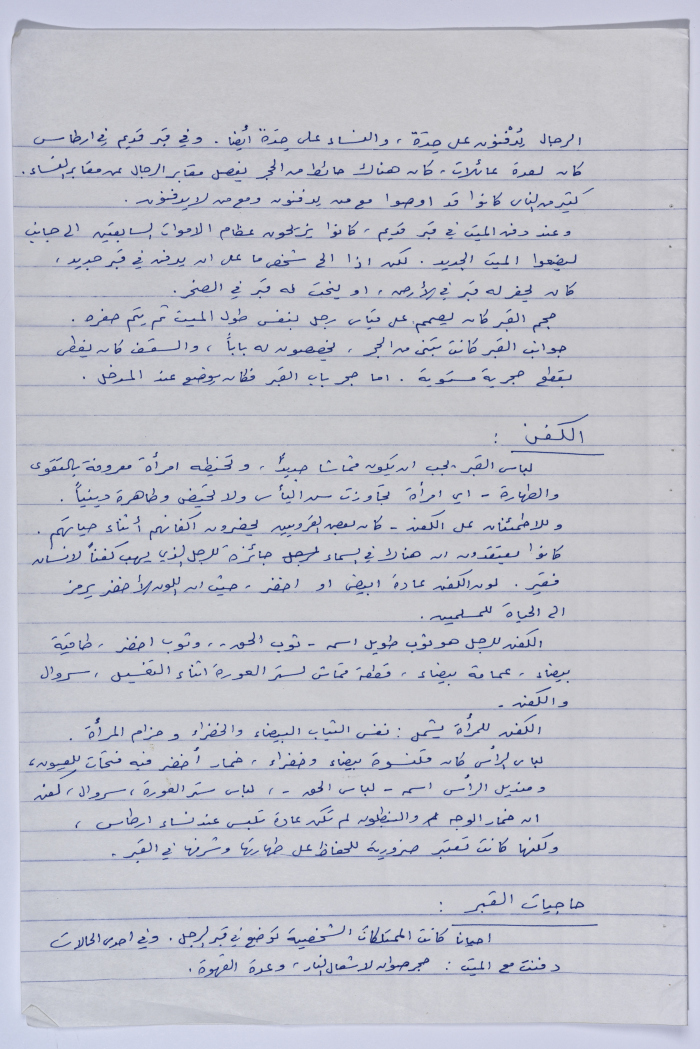 الرجال يُدْفنون على حِدَة ، والنساء على حِدَة أيضا . وفي قبر قديم في ارطاس
كان لعدة عائلات ، كان هناك حائط من الحجر يفصل مقابر الرجال عن مقابر النساء .
كثير من الناس كانوا قد اوصوا مع من يدفنون ومع من لا يدفنون .
وعند دفن الميت في قبر قديم ، كانوا يزيحون عظام الاموات السابقين الى جانب
ليضعوا الميت الجديد . لكن اذا الح شخص ما على ان يدفن في قبر جديد ،
كان يحفر له قبر في الأرض ، او ينحت له قبر في الصخر .
حجم القبر كان يصمم على قياس رجل بنفس طول الميت ثم يتم حفره .
جوانب القبر كانت تبنى من الحجر ، يخصصون له باباً ، والسقف كان يغطى
بقطع حجرية مستوية . اما حجر باب القبر فكان يوضع عند المدخل .
الكفن :
لباس القبر يجب ان يكون قماشا جديداً ، وتخيطه امرأة معروفة بالتقوى
والطهارة - اي امرأة تجاوزت سن اليأس ولا تحيض وطاهرة دينياً .
وللاطمئنان على الكفن - كان بعض القرويين يحضرون اكفانهم أثناء حياتهم .
كانوا يعتقدون ان هناك في السماء جائزة للرجل الذي يهب كفناً لانسان
فقير . لون الكفن عادة ابيض او اخضر ، حيث ان اللون الأخضر يرمز
الى الحياة للمسلمين .
الكفن للرجل هو ثوب طويل اسمه - ثوب الحق - ، وثوب اخضر ، طاقية
بيضاء ، عمامة بيضاء ، قطعة قماش لستر العورة اثناء التغسيل ، سروال
والكفن .
الكفن للمرأة يشمل : نفس الثياب البيضاء والخضراء وحزام المرأة .
لباس الرأس كان قلنسوة بيضاء وخضراء ، خمار أخضر فيه فتحات للعيون ،
ومنديل الرأس اسمه - لباس الحق - ، لباس ستر العورة ، سروال ، كفن
ان خمار الوجه والبنطلون لم تكن عادة تلبس عند نساء ارطاس ،
ولكنها كانت تعتبر ضرورية للحفاظ على طهارتها وشرفها في القبر .
حاجيات القبر :
احيانا كانت الممتلكات الشخصية توضع في قبر الرجل . وفي احدى الحالات
دفنت مع الميت : حجر صوان لاشعال النار ، وعدة القهوة .